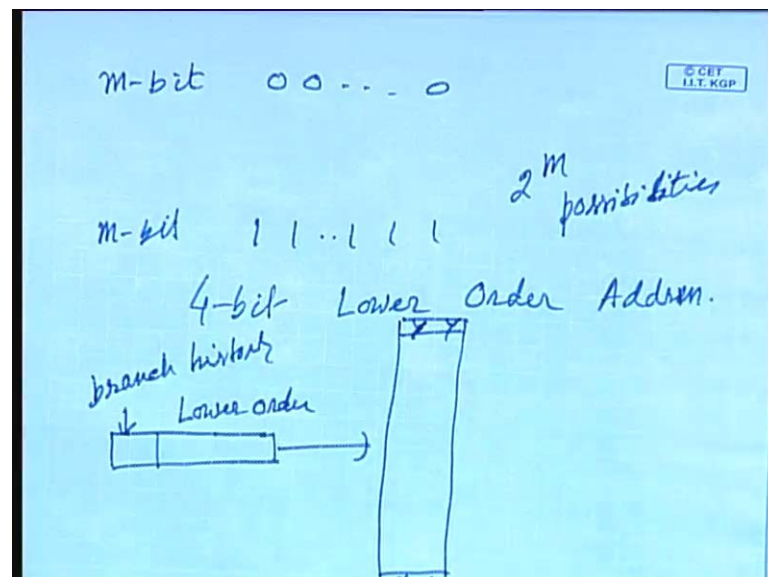 m-bit 0 0 . . . _ 0
© CET
I.I.T. KGP
2^m
possibilities
m-bit 1 1 .. 1 1 1
4-bit Lower Order Address.
branch history
Lower order